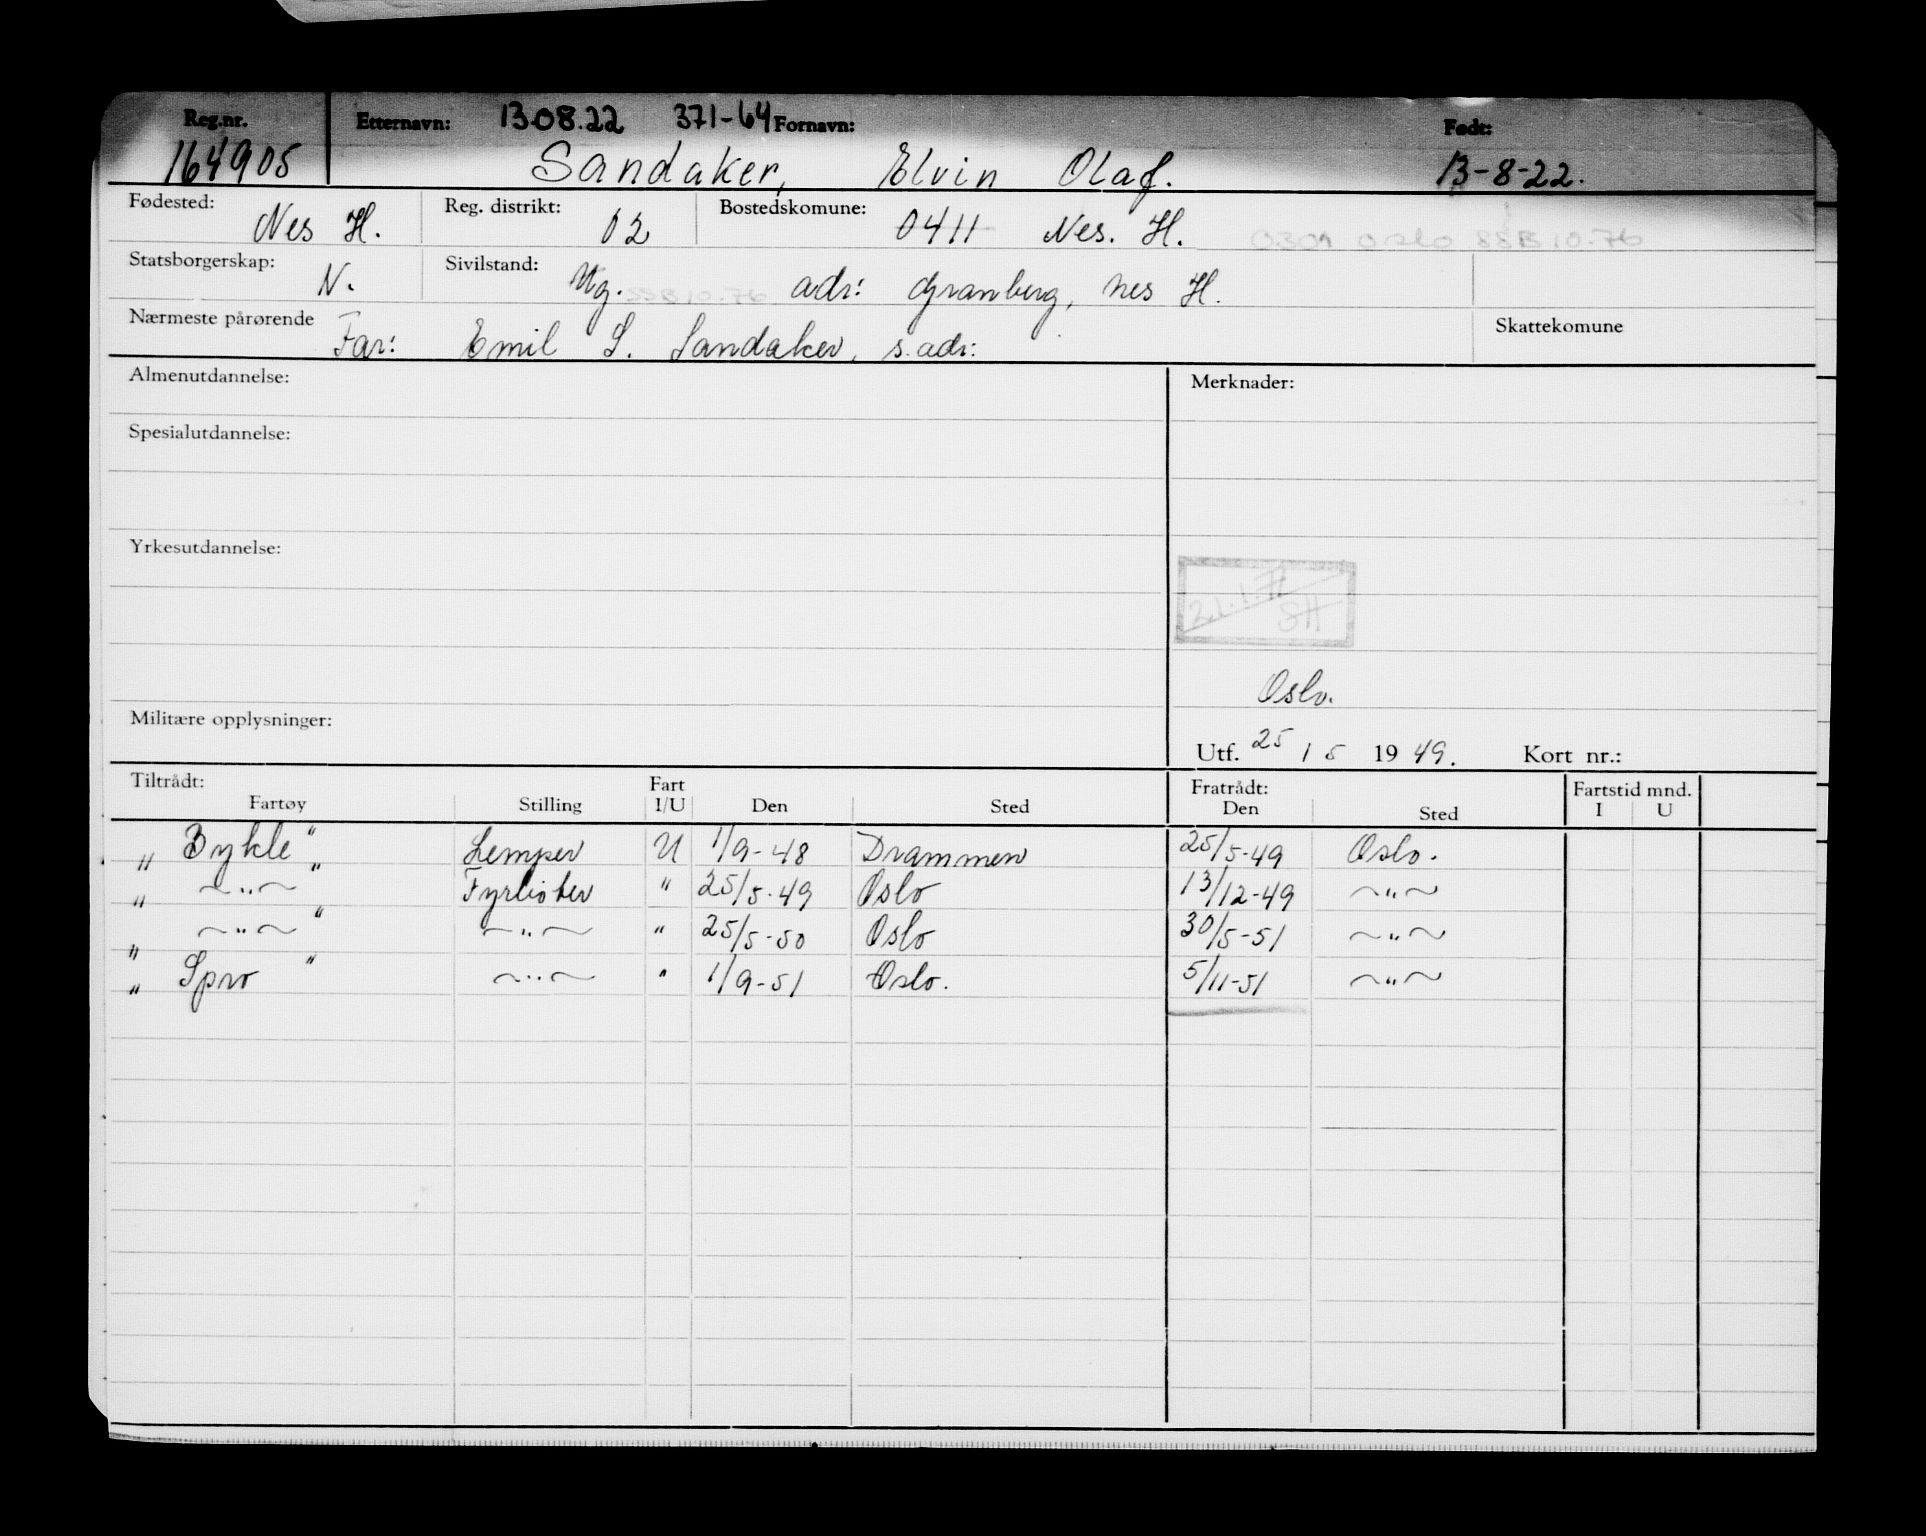 Reg.nr. Etternavn: 13.08.22 371-64 Fornavn: Født:
164905 Sandaker, Elvin Olaf. 13-8-22.
Fødested: Nes H. Reg. distrikt: 02 Bostedskomune: 0411 Nes. H. 0301 Oslo SSB 10.76
Statsborgerskap: N. Sivilstand: Ug. SSB 10.76 adr: Granberg, Nes H.
Nærmeste pårørende Far: Emil S. Sandaker, s. adr: Skattekomune
Almenutdannelse: Merknader:
Spesialutdannelse:
Yrkesutdannelse:
21.1.77
SH
Oslo.
Militære opplysninger:
Utf. 25 / 5 1949. Kort nr.:
Tiltrådt: Fart Fratrådt: Fartstid mnd.
Fartøy Stilling I/U Den Sted Den Sted I U
„ Bykle " Lemper U 1/9-48 Drammen 25/5-49 Oslo.
„ ~"~ „ Fyrbøter " 25/5-49 Oslo 13/12-49 ~"~
„ ~"~ " ~"~ " 25/5-50 Oslo 30/5-51 ~"~
„ Spro " ~"~ " 1/9-51 Oslo. 5/11-51 ~"~